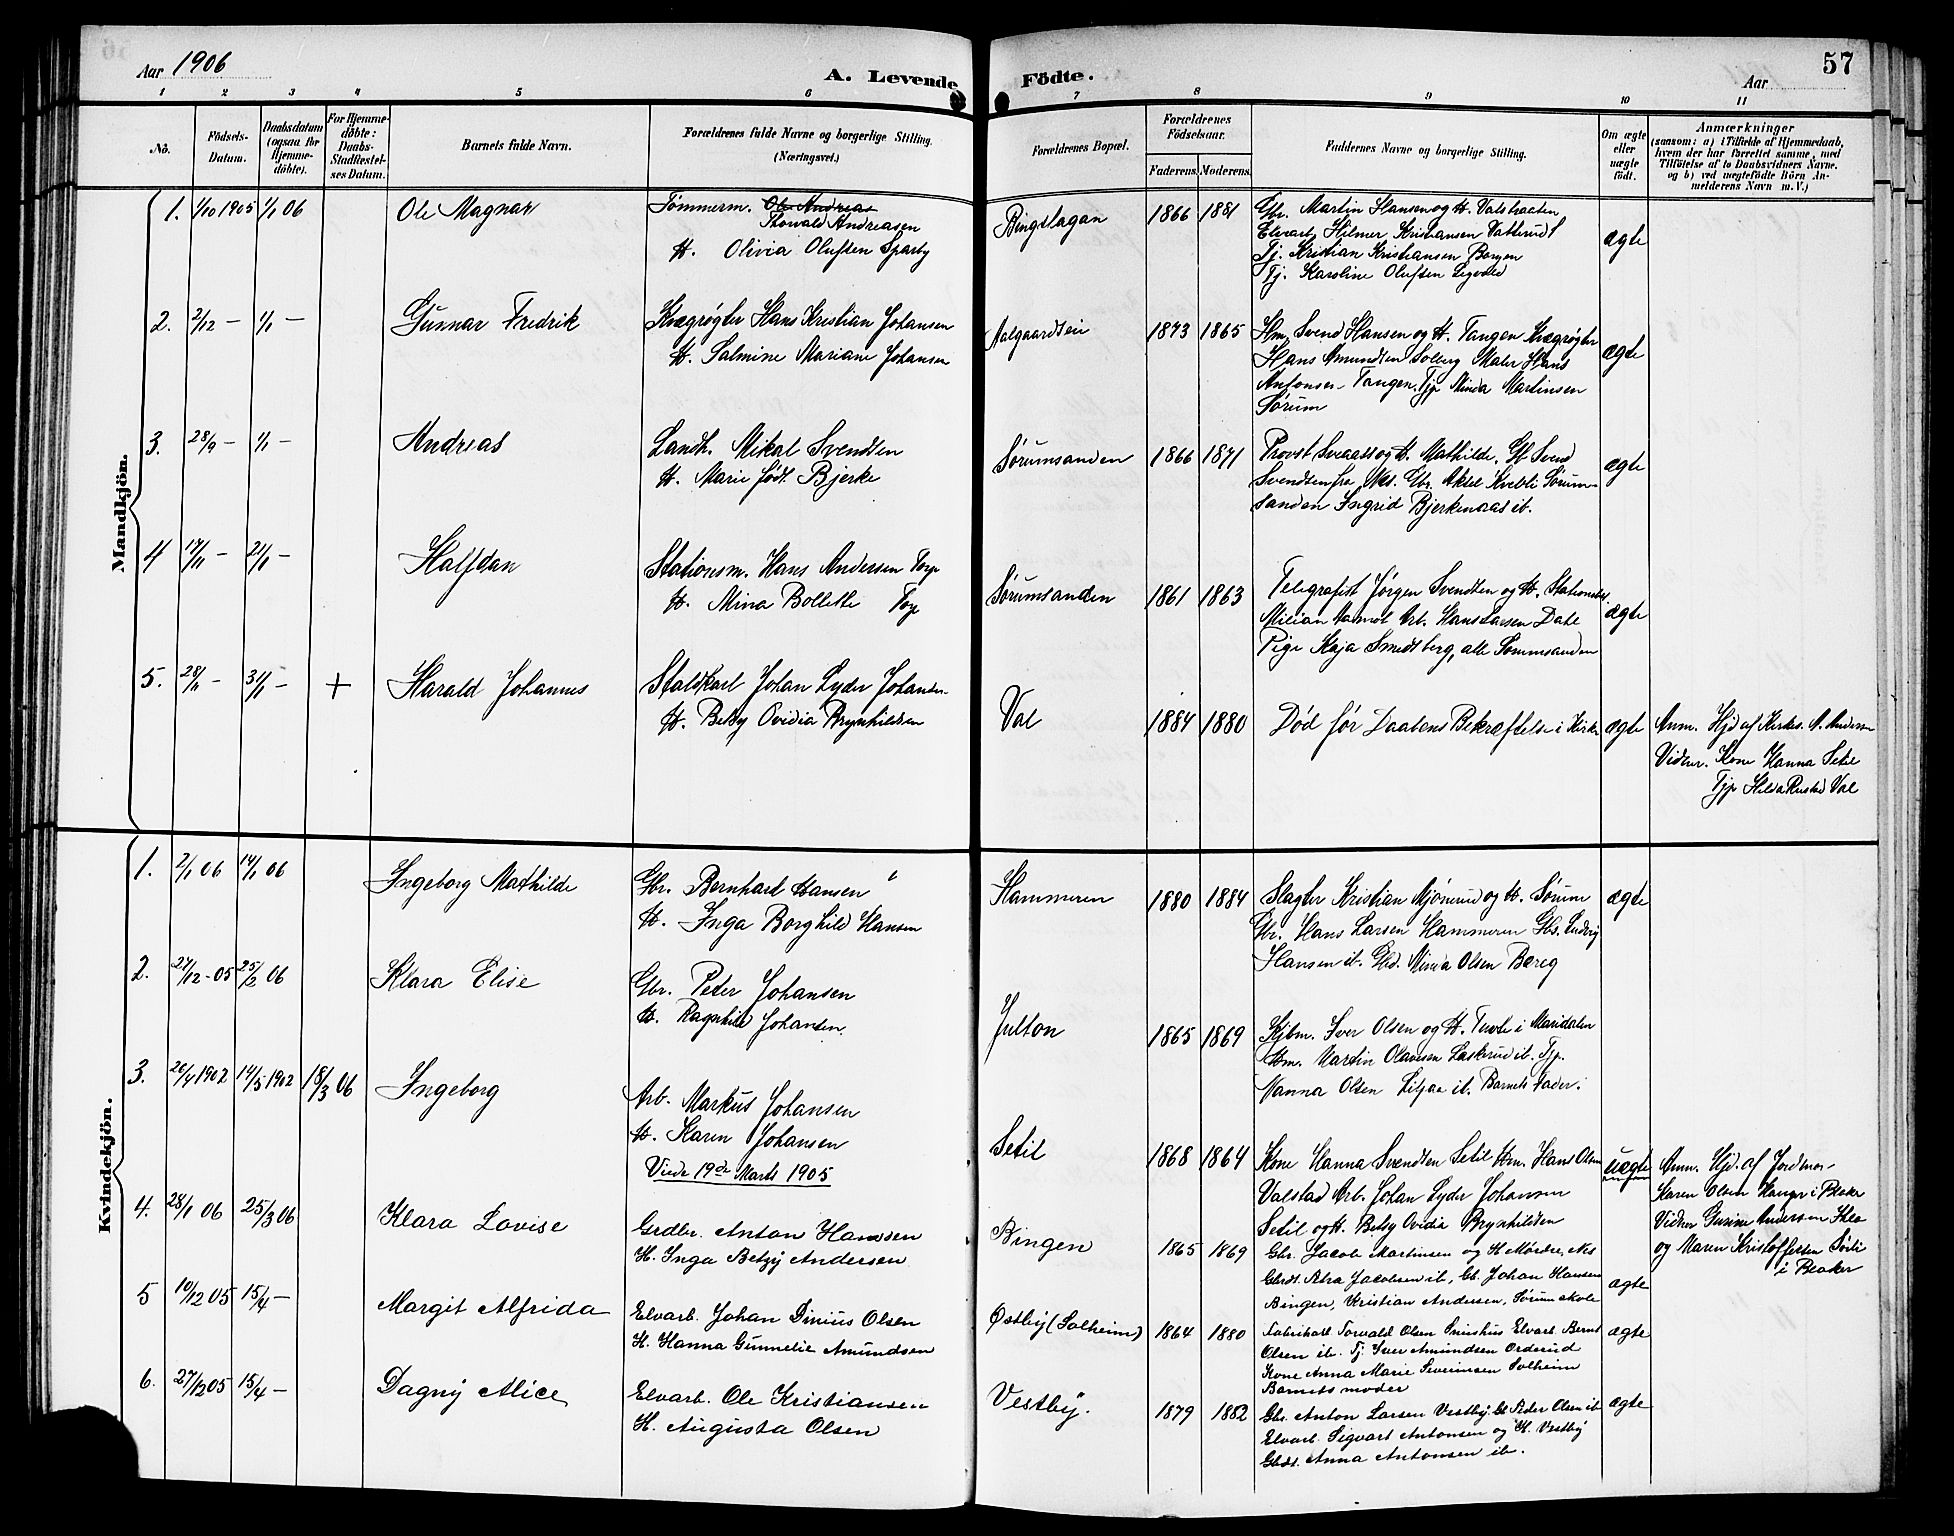 57
Aar 1906
A. Levende Födte.
Aar
1 2 3 4 5 6 7 8 9 10 11
No.
Födsels-Datum.
Daabsdatum (ogsaa for Hjemme-döbte).
For Hjemme-döbte: Daabs-Stadfæstel-ses Datum.
Barnets fulde Navn.
Forældrenes fulde Navne og borgerlige Stilling.
(Næringsvei.)
Forældrenes Bopæl.
Forældrenes Födselsaar.
Faderens. Moderens.
Faddernes Navne og borgerlige Stilling.
Om ægte eller uægte födt.
Anmærkninger
(saasom: a) i Tilfælde af Hjemmedaab,
hvem der har forrettet samme, med
Tilföielse af to Daabsvidners Navne.
og b) ved uægtefödte Börn An-
melderens Navn m. V.)
Mandkjön.
1. 1/10 1905 1/1 06 Ole Magnar
Tømmerm. Ole Andreas
Thorvald Andreasen
H. Olivia Olufsen Sparby
Bingslagan 1866 1881
Gbr. Martin Hansen og H. Valstraaten
Elvearb. Hilmer Kristiansen Vatterud
Tj. Kristian Kristiansen Borgen
Tj. Karoline Olufsen
ægte
2. 2/12 – 1/1 – Gunnar Fredrik
Kvægrøgter Hans Kristian Johansen
H. Salmine Mariane Johansen
Aalgaardseie 1873 1865
Hm. Svend Hansen og H. Tangen Kvægrøgter
Hans Amundsen Solberg Maler Hans
Antonsen Tangen. Tjp Minda Martinsen
Sørum
ægte
3. 28/9 – 1/1 – Andreas
Landh. Mikal Svendsen
H. Marie født Bjerke
Sørumsanden 1866 1871
Provst Sveaas og H. Mathilde. Gb Svend
Svendsen fra Nes. Gbr. Aksel Kvebli Sørum-
sanden Ingrid Bjerkenaas ib.
ægte
4 17/11 – 21/1 – Halfdan
Stationsm. Hans Andersen Torp
H. Mina Bollette Torp
Sørumsanden 1861 1863
Telegrafist Jørgen Svendsen og H. Stationsbet.
Milian Aamot Arb. Hans Larsen Dahl
Pige Kaja Smedsberg, alle Sørumsanden
ægte
5. 28/11 – 31/1 – + Harald Johannes
Staldkarl Johan Lyder Johansen
H. Betsy Ovidia Brynhildsen
Val 1884 1880
Død før Daabens Bekræftelse i Kirke
ægte
Anm. Hjd af Kirkes. A. Andersen
Vidner. Kone Hanna Setil
Tjp Hilda Rustad Val
Kvindekjön.
1. 2/1 06 14/1 06 Ingeborg Mathilde
Gbr. Bernhard Hansen
H. Inga Borghild Hansen
Hammeren 1880 1884
Slagter Kristian Mjønerud og H. Sørum
Gbr. Hans Larsen Hammeren Gbs. Ludvig
Hansen ib. Gbd. Minda Olsen Bareg
ægte
2. 27/12 - 05 25/2 06 Klara Elise
Gbr. Peter Johansen
H. Ragnhild Johansen
Julton 1865 1869
Kjbm. Iver Olsen og H. Tuvle i Maridalen
Hm. Martin Olavesen Laskerud ib. Tjp.
Nanna Olsen Liljaa ib. Barnets Fader.
3. 26/4 1902 14/5 1902 18/3 06 Ingeborg
Arb. Markus Johansen
H. Karen Johansen
Viede 19de Marts 1905
Setil 1868 1864
Kone Hanna Svendsen Setil Hm. Hans Olsen
Valstad Arb. Johan Lyder Johansen
Setil og H. Betsy Ovidia Brynhildsen
uægte
Anm. Hjd. af Jordmor
Karen Olsen Hanger i Blaker
Vidner Gusine Andersen Fklo
og Maren Kristoffersen Sørli
i Blaker
4. 28/1 06 25/3 06 Klara Lovise
Grdbr. Anton Hansen
H. Inga Betzy Andersen
Bingen 1865 1869
Gbr. Jacob Martinsen og H Mørdre, Nes
Gbrdt. Alra Jacobsen ib, Gb. Johan Hansen
Bingen, Kristian Andersen, Sørum skole
ægte
5 10/12 05 15/4 – Margit Alfrida
Elvarb. Johan Dinius Olsen
H. Hanna Gunnelie Amundsen
Østby (Solheim) 1864 1880
Fabrikarb Torvald Olsen Snushus Elvarb. Bernt
Olsen ib. Tj. Iver Amundsen Orderud
Kone Anna Marie Severinsen Solheim
Barnets moder
ægte
6. 27/12 05 15/4 – Dagny Alice
Elvarb. Ole Kristiansen
H. Augusta Olsen
Vestby. 1879 1882
Gbr. Anton Larsen Vestby Gb Peder Olsen ib
Elvarb. Sigvart Antonsen og H. Vestby
Gbdt. Anna Antonsen ib.
ægte